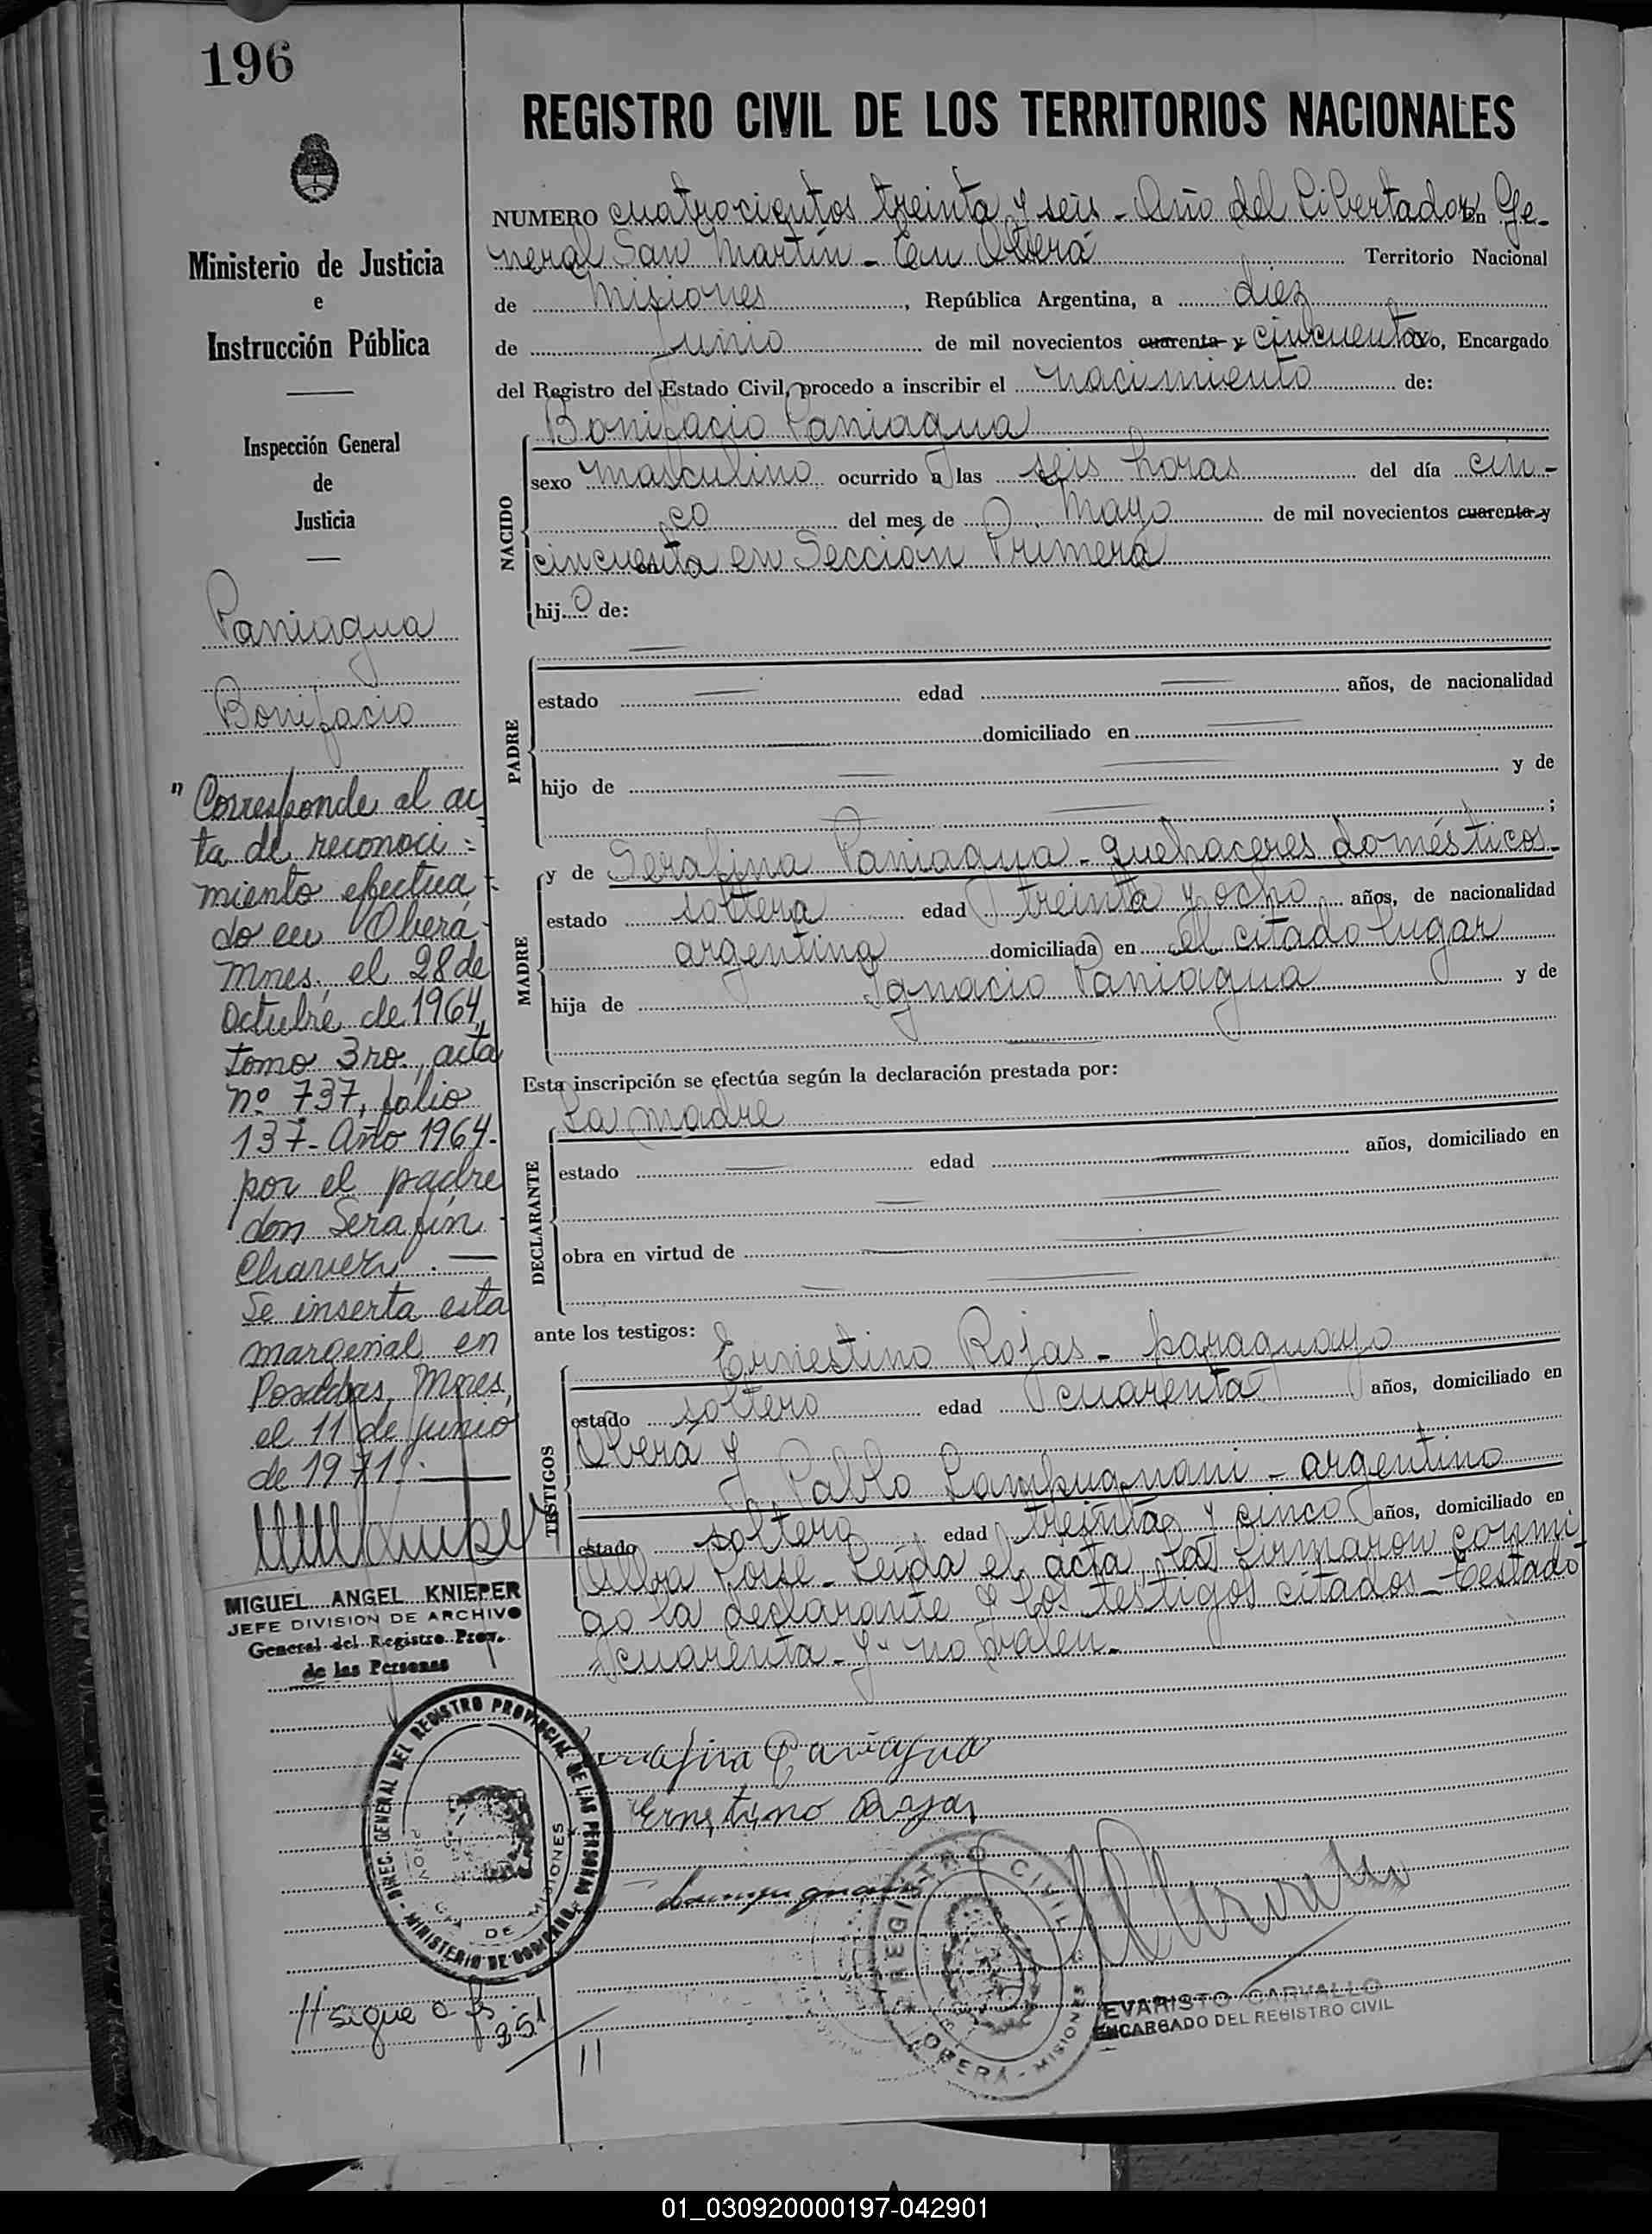 196
Ministerio de Justicia
e
Instrucción Pública
Inspección General
de
Justicia
Paniagua
Bonifacio
"Corresponde al ac
ta de reconoci=
miento efectua
do en Oberá
Mnes. el 28 de
Octubre de 1964,
tomo 3ro., acta
nº 737, folio
137-Año 1964-
por el padre
don Serafín
Chavez.—
Se inserta esta
marginal en
Posadas, Mnes,
el 11 de junio
de 1971.—
MIGUEL ANGEL KNIEPER
JEFE DIVISION DE ARCHIVO
General del Registro Prov.
de las Personas
DIREC. GENERAL DEL REGISTRO PROVINCIAL DE LAS PERSONAS - MINISTERIO DE GOBIERNO
DE MISIONES
//sigue a fs. 251
REGISTRO CIVIL DE LOS TERRITORIOS NACIONALES
NUMERO cuatrocientos treinta y seis - Año del Libertador En Ge-
neral San Martín - En Oberá Territorio Nacional
de Misiones, República Argentina, a diez
de Junio de mil novecientos cuarenta y cincuenta yo, Encargado
del Registro del Estado Civil, procedo a inscribir el nacimiento de:
Bonifacio Paniagua
NACIDO
sexo masculino ocurrido a las seis horas del día cin-
co del mes de Mayo de mil novecientos cuarenta y
cincuenta en Sección Primera
hijo de:
PADRE
estado — edad — años, de nacionalidad
— domiciliado en —
hijo de — y de
— ;
MADRE
y de Serafina Paniagua - quehaceres domésticos-
estado soltera edad treinta y ocho años, de nacionalidad
argentina domiciliada en el citado lugar
hija de Ignacio Paniagua y de
—
Esta inscripción se efectúa según la declaración prestada por:
La madre
DECLARANTE
estado — edad — años, domiciliado en
—
obra en virtud de —
—
ante los testigos:
Ernestino Rojas - paraguayo
TESTIGOS
estado soltero edad cuarenta años, domiciliado en
Oberá y
Pablo Lampugnani - argentino
estado soltero edad treinta y cinco años, domiciliado en
Alba Posse - Leída el acta, la firmaron conmi
go la declarante y los testigos citados - Testado
cuarenta - y - no valen.
Serafina Paniagua
Ernestino Rojas
Lampugnani
REGISTRO CIVIL
OBERÁ - MISIONES
EVARISTO CARVALLO
ENCARGADO DEL REGISTRO CIVIL
//
01_030920000197-042901